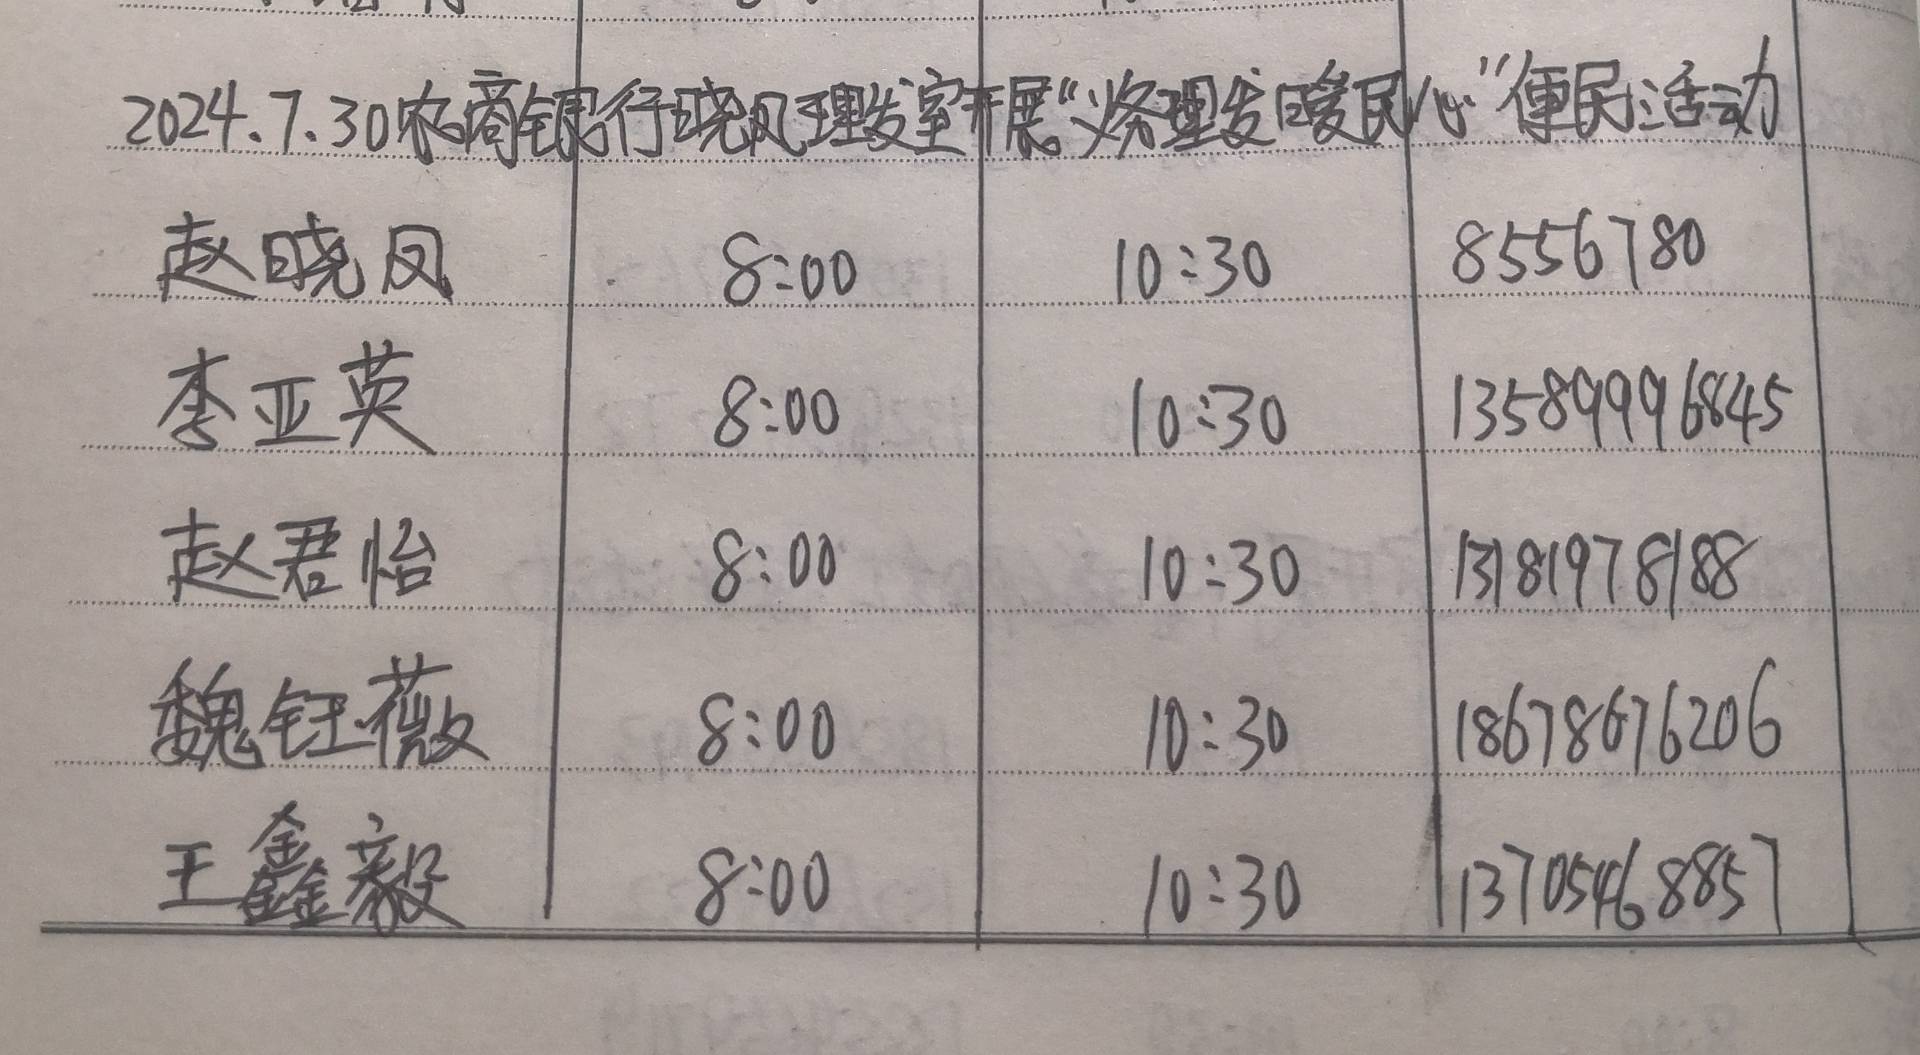 2024.7.30农商银行晓凤理发室开展“义务理发暖民心”便民活动
赵晓凤 8:00 10:30 8556780
李亚英 8:00 10:30 13589996845
赵君怡 8:00 10:30 13181978188
魏钰薇 8:00 10:30 18678676206
王鑫毅 8:00 10:30 13705468857